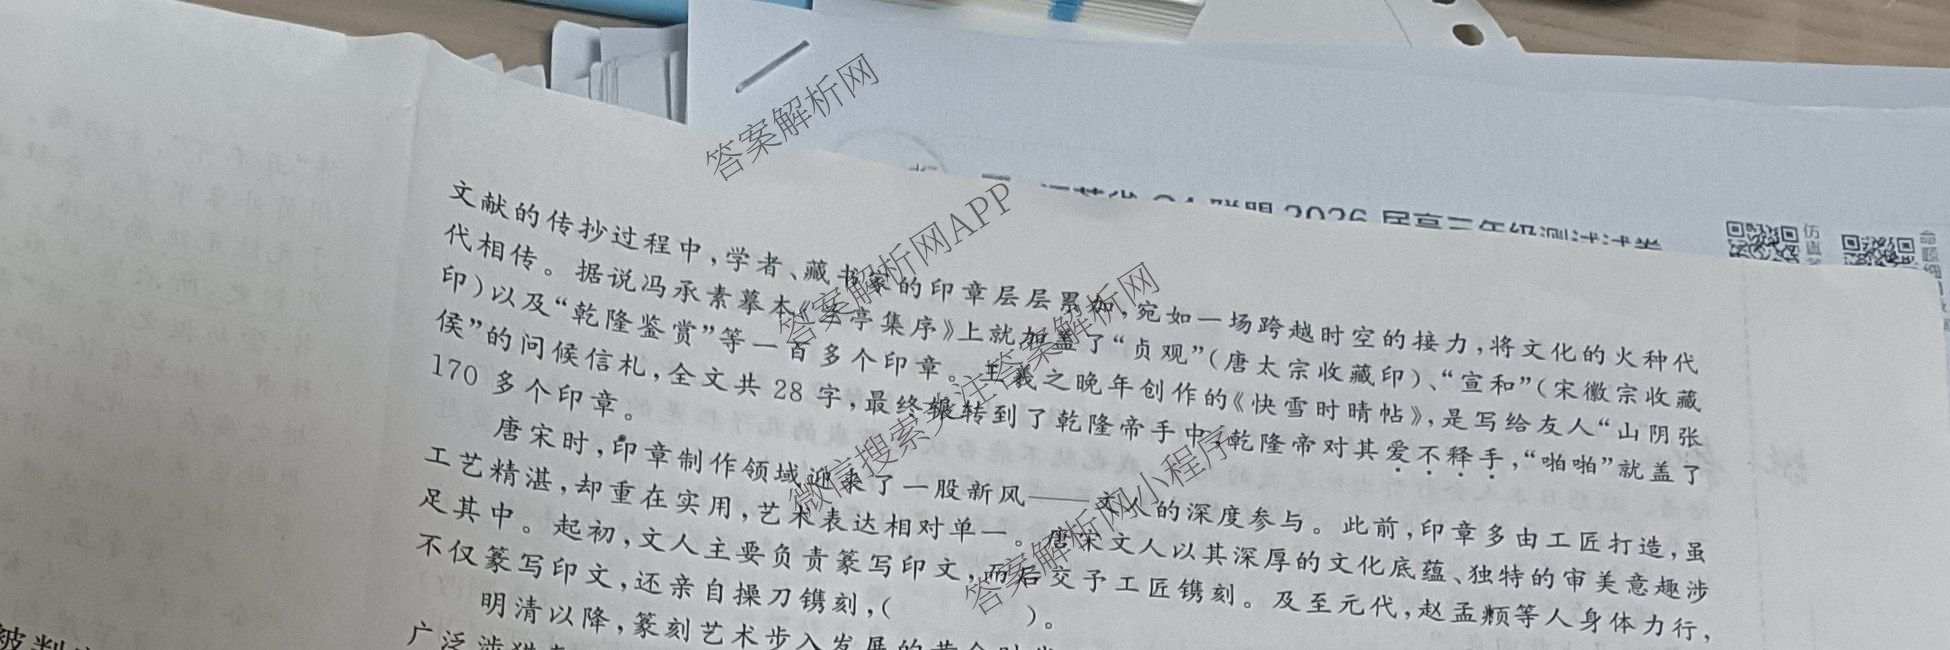 2026 届高三年级测试试卷
文献的传抄过程中，学者、藏书家的印章层层累加，宛如一场跨越时空的接力，将文化的火种代
代相传。据说冯承素摹本《兰亭集序》上就加盖了“贞观”（唐太宗收藏印）、“宣和”（宋徽宗收藏
印）以及“乾隆鉴赏”等一百多个印章。王羲之晚年创作的《快雪时晴帖》，是写给友人“山阴张
侯”的问候信札，全文共 28 字，最终辗转到了乾隆帝手中，乾隆帝对其爱不释手，“啪啪”就盖了
170 多个印章。
唐宋时，印章制作领域迎来了一股新风——文人的深度参与。此前，印章多由工匠打造，虽
工艺精湛，却重在实用，艺术表达相对单一。唐宋文人以其深厚的文化底蕴、独特的审美意趣涉
足其中。起初，文人主要负责篆写印文，而后交予工匠镌刻。及至元代，赵孟頫等人身体力行，
不仅篆写印文，还亲自操刀镌刻，（　　）。
明清以降，篆刻艺术步入发展的黄金时
广泛涉猎
答案解析网
答案解析网APP
微信搜索关注答案解析网
答案解析网小程序